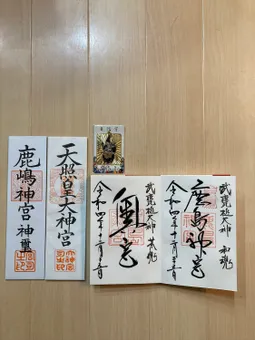 天照皇大神宮
鹿嶋神宮 神璽
武甕槌大神 和魂
鹿島神宮
令和四年十二月
武甕槌大神 荒魂
奥宮
令和四年十二月